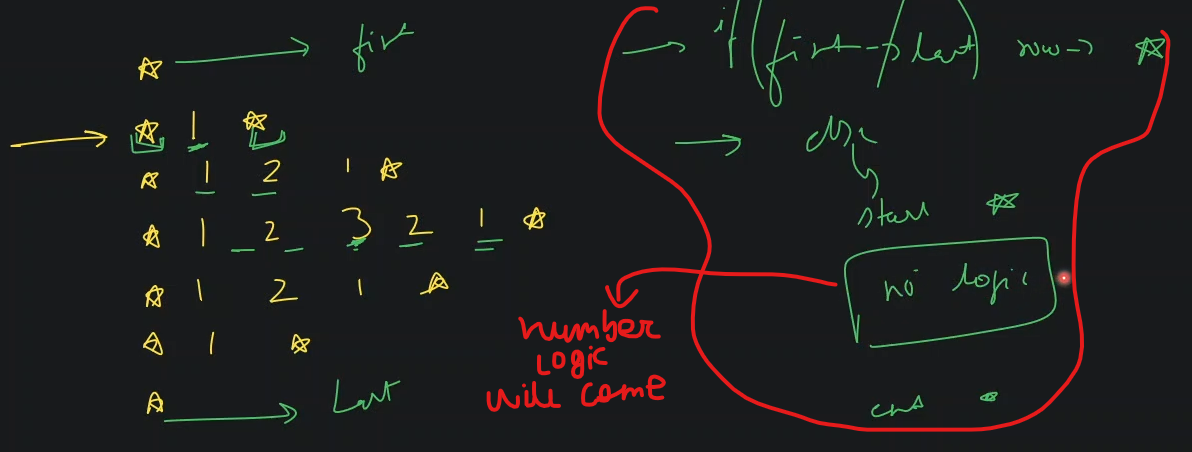 ☆ → first
→ ☆ 1 ☆
☆ 1 2 1 ☆
☆ 1 2 3 2 1 ☆
☆ 1 2 1 ☆
☆ 1 ☆
☆ → Last
→ if (first → / last) row → ☆
→ else
start ☆
no logic
number
Logic
will come
end *